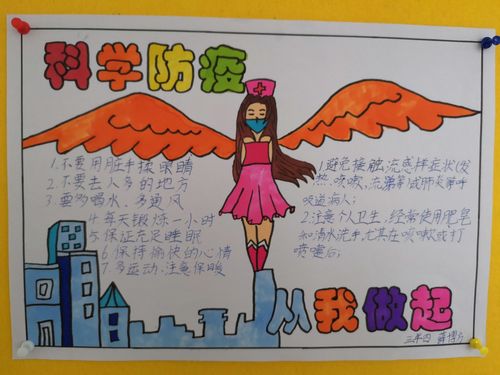 科学防疫
1.不要用脏手揉眼睛
2.不要去人多的地方
3.要多喝水、多通风
4.每天锻炼一小时
5.保证充足睡眠
6.保持愉快的心情
7.多运动、注意保暖
1.避免接触流感样症状(发
热、咳嗽、流涕等)或肺炎等呼
吸道病人;
2.注意个人卫生,经常使用肥皂
和清水洗手,尤其在咳嗽或打
喷嚏后;
从我做起
三年四